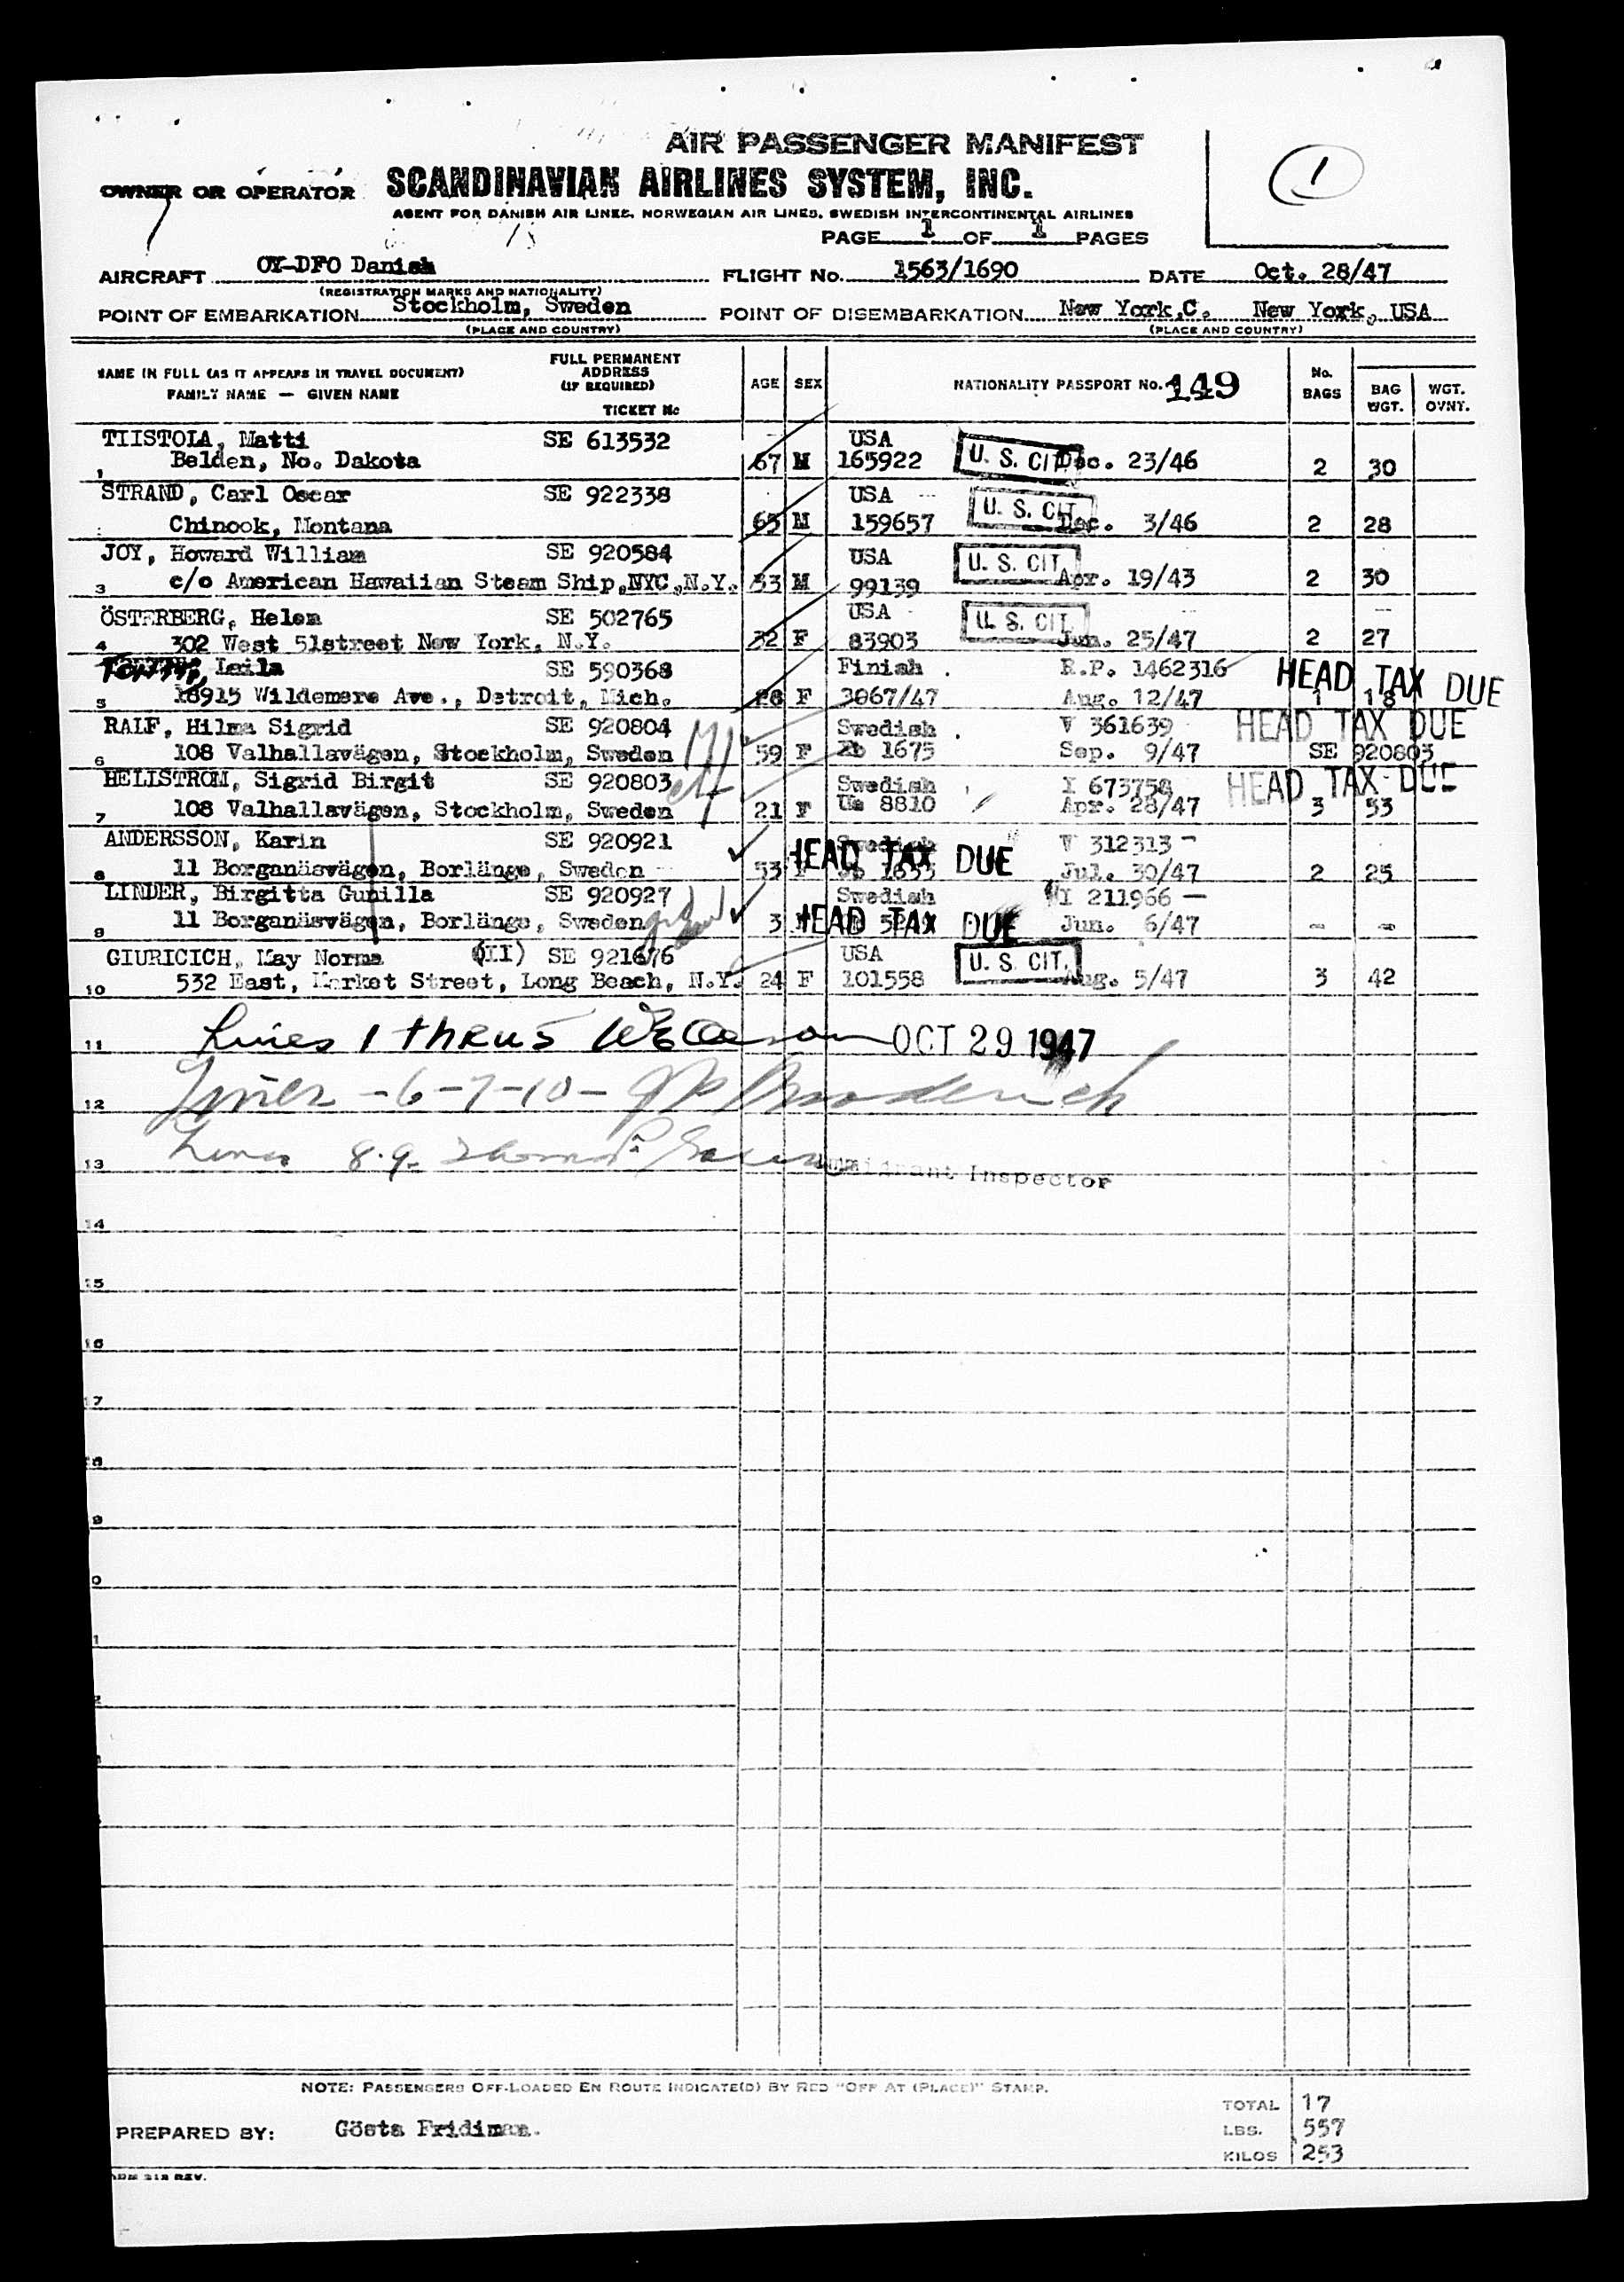 AIR PASSENGER MANIFEST
1
OWNER OR OPERATOR SCANDINAVIAN AIRLINES SYSTEM, INC.
AGENT FOR DANISH AIR LINES, NORWEGIAN AIR LINES, SWEDISH INTERCONTINENTAL AIRLINES
PAGE 1 OF 1 PAGES
AIRCRAFT OY-DFO Danish FLIGHT No. 1563/1690 DATE Oct. 28/47
(REGISTRATION MARKS AND NATIONALITY)
POINT OF EMBARKATION Stockholm, Sweden POINT OF DISEMBARKATION New York,C. New York, USA
(PLACE AND COUNTRY) (PLACE AND COUNTRY)
NAME IN FULL (AS IT APPEARS IN TRAVEL DOCUMENT) FAMILY NAME — GIVEN NAME
FULL PERMANENT ADDRESS (IF REQUIRED) TICKET No
AGE SEX NATIONALITY PASSPORT No. 149 No. BAGS BAG WGT. WGT. OVNT.
TIISTOLA, Matti SE 613532 USA
1 Belden, No. Dakota 67 M 165922 U. S. CIT. Dec. 23/46 2 30
STRAND, Carl Oscar SE 922338 USA
Chinook, Montana 65 M 159657 U. S. CIT. Dec. 3/46 2 28
JOY, Howard William SE 920584 USA
3 c/o American Hawaiian Steam Ship,NYC,N.Y. 53 M 99139 U. S. CIT. Apr. 19/43 2 30
ÖSTERBERG, Helen SE 502765 USA
4 302 West 51street New York, N.Y. 32 F 83903 U. S. CIT. Jun. 25/47 2 27
Leila SE 590368 Finish R.P. 1462316 HEAD TAX DUE
5 18915 Wildemere Ave., Detroit, Mich. 28 F 3067/47 Aug. 12/47 1 18
RALF, Hilma Sigrid SE 920804 Swedish V 361639 HEAD TAX DUE
6 108 Valhallavägen, Stockholm, Sweden 59 F 1675 Sep. 9/47 SE 920803
HELLSTROM, Sigrid Birgit SE 920803 Swedish I 673758 HEAD TAX DUE
7 108 Valhallavägen, Stockholm, Sweden 21 F Ue 8810 Apr. 28/47 3 53
ANDERSSON, Karin SE 920921 Swedish V 312313 -
8 11 Borganäsvägen, Borlänge, Sweden 53 F HEAD TAX DUE Jul. 30/47 2 25
LINDER, Birgitta Gunilla SE 920927 Swedish I 211966 —
9 11 Borganäsvägen, Borlänge, Sweden 3 HEAD TAX DUE Jun. 6/47 - -
GIURICICH, May Norma (II) SE 921676 USA
10 532 East, Market Street, Long Beach, N.Y. 24 F 101558 U. S. CIT. Aug. 5/47 3 42
11 Lines 1 thru 5 OCT 29 1947
12 Lines - 6-7-10 -
13 Lines 8.9. Immigrant Inspector
14
15
16
17
NOTE: PASSENGERS OFF-LOADED EN ROUTE INDICATE(D) BY RED "OFF AT (PLACE)" STAMP.
TOTAL 17
PREPARED BY: Gösta Fridiman. LBS. 557
KILOS 253
REV.